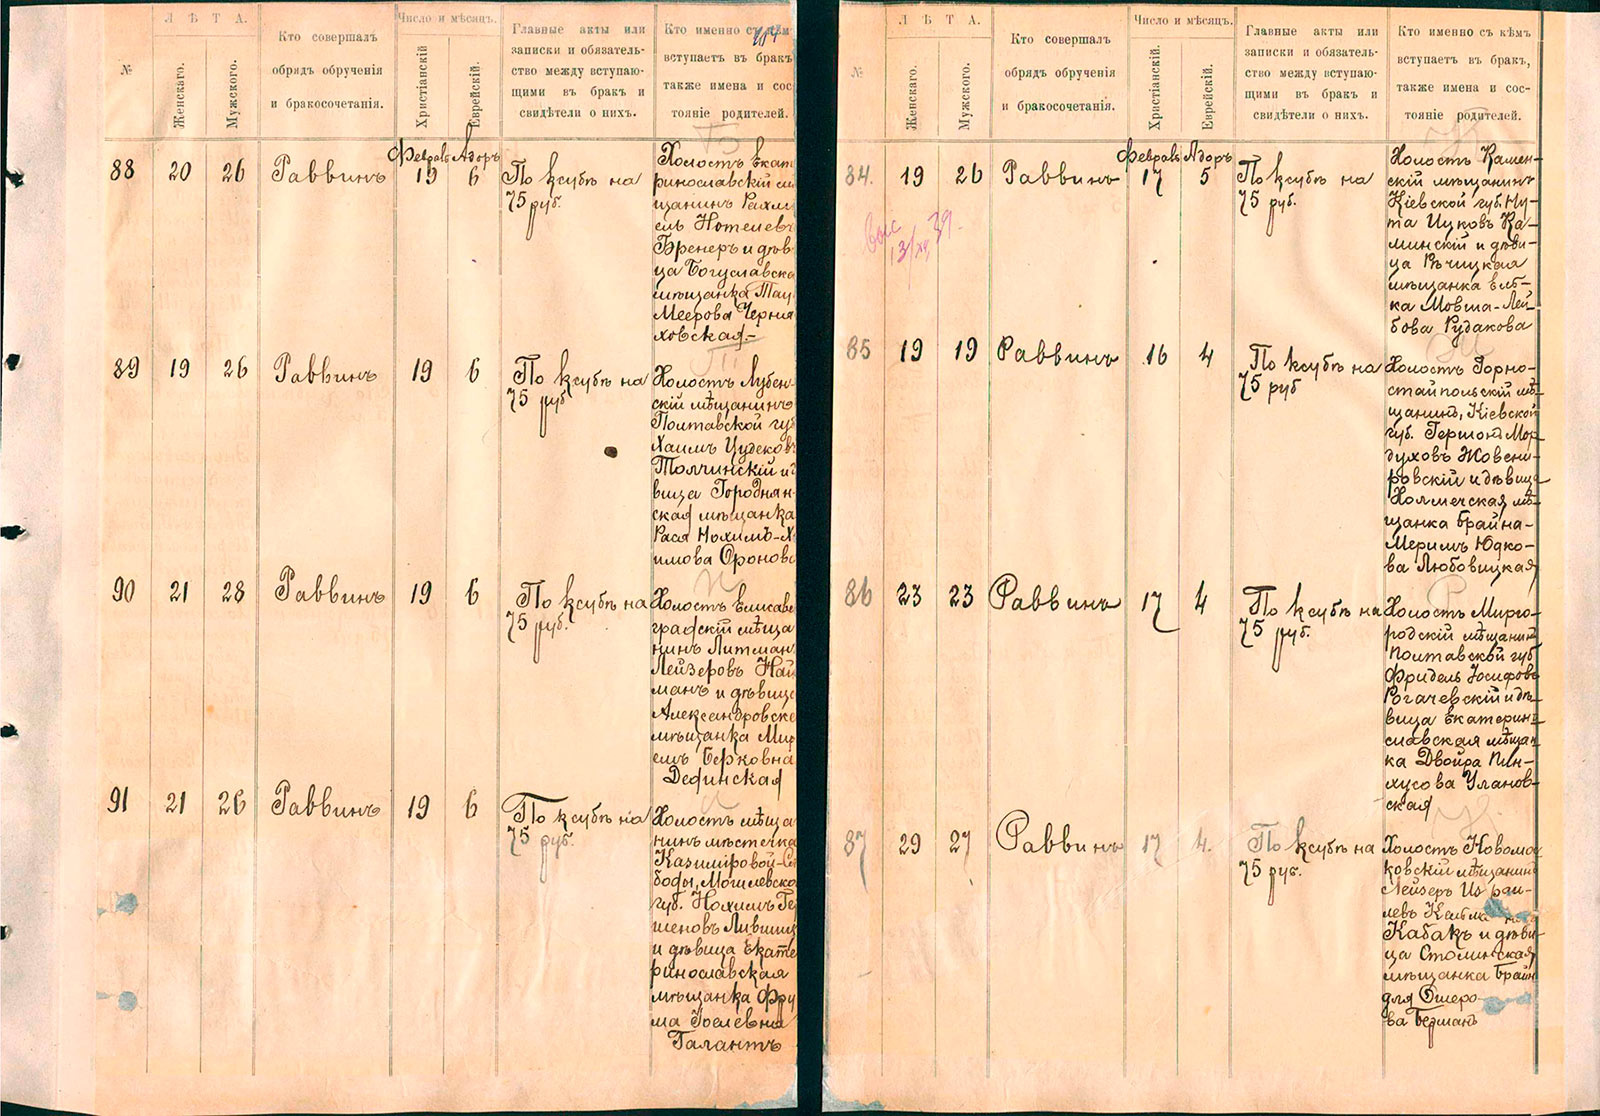 №
Л Ѣ Т А.
Женскаго.
Мужского.
Кто совершалъ
обрядъ обрученія
и бракосочетанія.
Число и мѣсяцъ.
Христіанскій
Еврейскій.
Главные акты или
записки и обязатель-
ство между вступаю-
щими въ бракъ и
свидѣтели о нихъ.
Кто именно съ кѣмъ
вступаетъ въ бракъ
также имена и сос
тояніе родителей.
Февраль Адоръ
88 20 26 Раввинъ 19 6
По ксубѣ на
75 руб.
Холостъ Екат
ринославскій мѣ
щанинъ Рахм
ель Нотелевъ
Бренеръ и дѣв
ца Богуславска
мѣщанка Тау
Меерова Черня
ховская.-
89 19 26 Раввинъ 19 6
По ксубѣ на
75 руб
Холостъ Лубен
скій мѣщанинъ
Полтавской гу
Хаимъ Иудеков
Толчинскій и д
вица Городнян-
ская мѣщанка
Рася Нохимъ-Х
имова Оронов
90 21 28 Раввинъ 19 6
По ксубѣ на
75 руб.
Холостъ Елисаве
градскій мѣща
нинъ Литман
Лейзеровъ Най
манъ и дѣвица
Александровска
мѣщанка Мир
емъ Берковна
Дефинская
91 21 26 Раввинъ 19 6
По ксубѣ на
75 руб.
Холостъ мѣща
нинъ мѣстечка
Казиміровой-Сл
боды, Могилевско
губ. Нохимъ Ге
шеновъ Лившиц
и дѣвица Екате
ринославская
мѣщанка Фру
ма Іоселевна
Галантъ
№
Л Ѣ Т А.
Женскаго.
Мужского.
Кто совершалъ
обрядъ обрученія
и бракосочетанія.
Число и мѣсяцъ.
Христіанскій.
Еврейскій.
Главные акты или
записки и обязатель-
ство между вступаю-
щими въ бракъ и
свидѣтели о нихъ.
Кто именно съ кѣмъ
вступаетъ въ бракъ,
также имена и сос-
тояніе родителей.
Февраль Адоръ
84. 19 26 Раввинъ 17 5
По ксубѣ на
75 руб.
Холостъ Камен-
скій мѣщанинъ
Кіевской губ. Ну-
та Ицковъ Ка-
минскій и дѣви-
ца Рѣчицкая
мѣщанка Ель-
ка Мовша-Лей-
бова Рудакова
85 19 19 Раввинъ 16 4
По ксубѣ на
75 руб
Холостъ Горно-
стайпольскій мѣ
щанинъ, Кіевской
губ. Гершонъ Мор
духовъ Жовени-
ровскій и дѣвица
Холмечская мѣ
щанка Брайна-
Меримъ Юдко-
ва Любовицкая
86 23 23 Раввинъ 17 4
По ксубѣ на
75 руб.
Холостъ Мирго-
родскій мѣщанин
Полтавской губ
Фридель Іосифовъ
Рогачевскій и дѣ
вица Екатерин
славская мѣщан
ка Двойра Пин-
хусова Уланов-
ская
87 29 27 Раввинъ 17 4.
По ксубѣ на
75 руб.
Холостъ Новомо
ковскій мѣщанин
Лейзеръ Израи-
левъ
Кабакъ и дѣви-
ца Столинская
мѣщанка Брайн
для Ошеро-
ва Берманъ